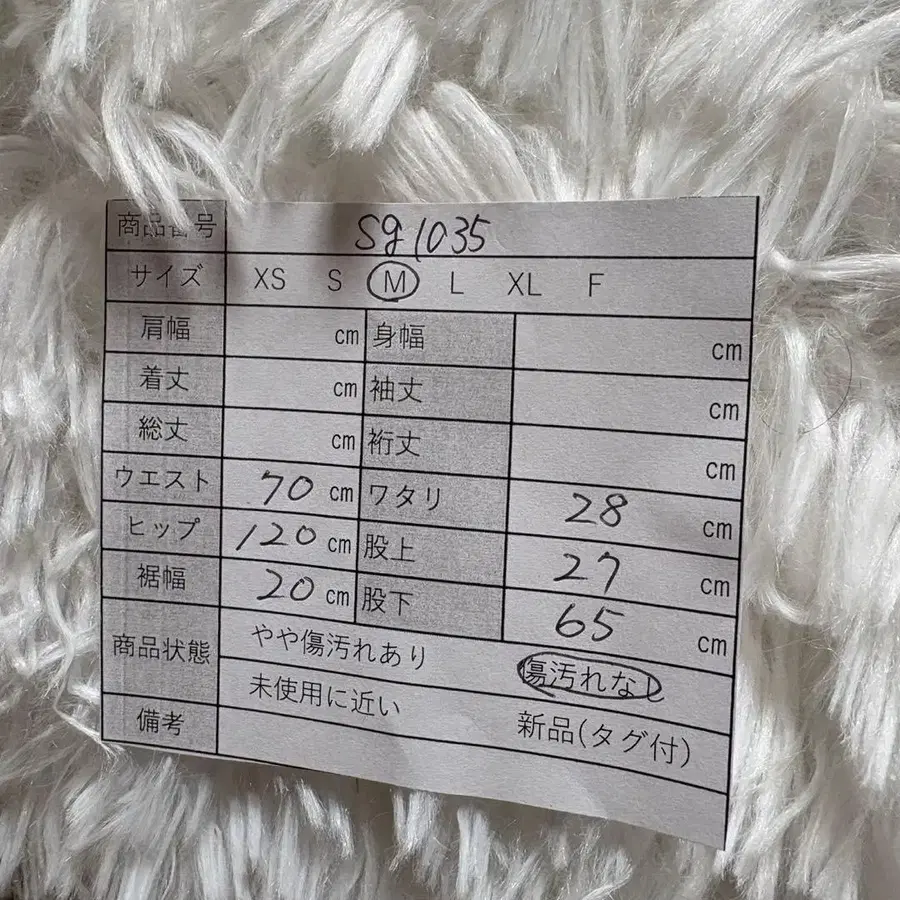 商品番号 sg1035
サイズ XS S M L XL F
肩幅 cm 身幅 cm
着丈 cm 袖丈 cm
総丈 cm 裄丈 cm
ウエスト 70 cm ワタリ 28 cm
ヒップ 120 cm 股上 27 cm
裾幅 20 cm 股下 65 cm
商品状態 やや傷汚れあり 傷汚れなし
未使用に近い 新品(タグ付)
備考